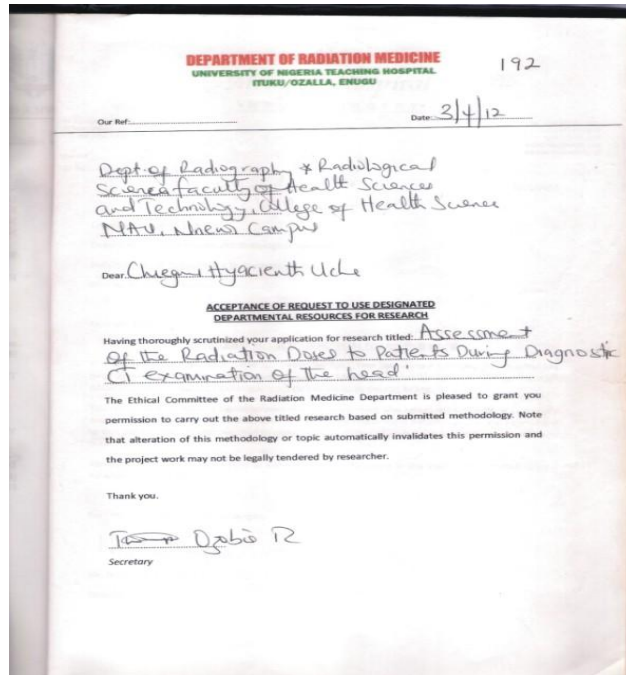 DEPARTMENT OF RADIATION MEDICINE
UNIVERSITY OF NIGERIA TEACHING HOSPITAL
ITUKU/OZALLA, ENUGU
192
Our Ref:
Date: 3/4/12
Dept. of Radiography & Radiological
Science faculty of Health Sciences
and Technology, College of Health Science
NAU, Nnewi Campus
Dear Hyacienth Uche
ACCEPTANCE OF REQUEST TO USE DESIGNATED
DEPARTMENTAL RESOURCES FOR RESEARCH
Having thoroughly scrutinized your application for research titled: Assessment
Of the Radiation Doses to Patients During Diagnostic
CT examination of the head'
The Ethical Committee of the Radiation Medicine Department is pleased to grant you
permission to carry out the above titled research based on submitted methodology. Note
that alteration of this methodology or topic automatically invalidates this permission and
the project work may not be legally tendered by researcher.
Thank you.
R
Secretary